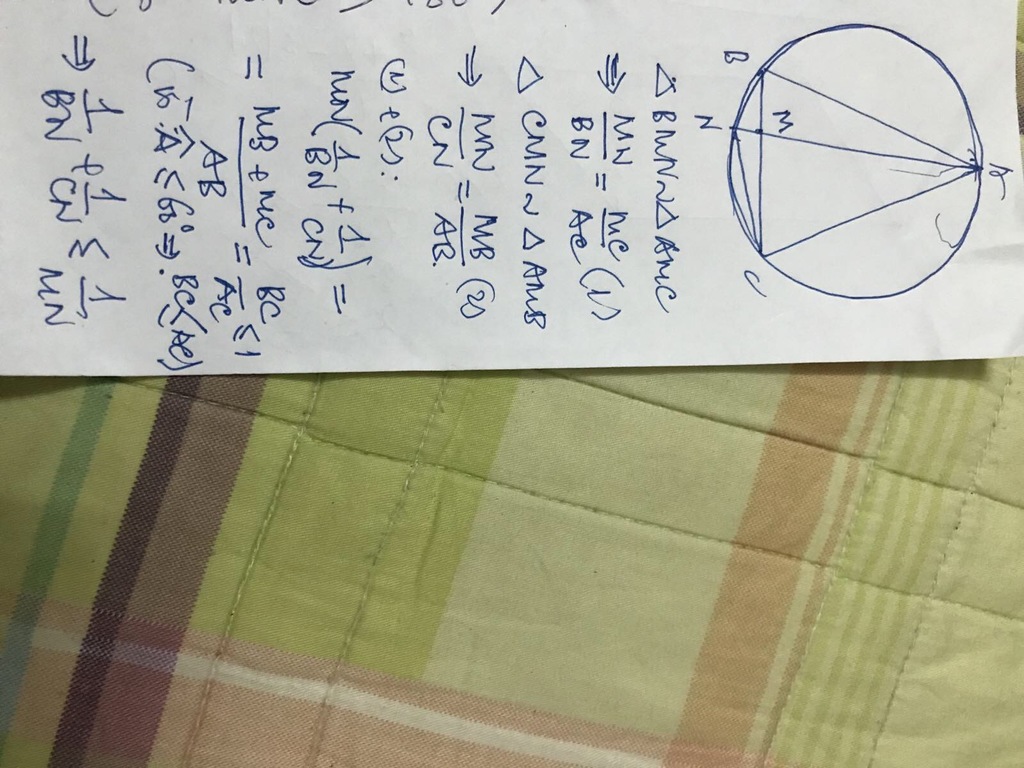 A
B
M
N
C
△BMN ~ △AMC
⇒ MN/BN = MC/AC (1)
△CMN ~ △AMB
⇒ MN/CN = MB/AB (2)
(1) + (2):
MN(1/BN + 1/CN) =
= MB + MC/AB = BC/AC ≤ 1
(Vì Â ≤ 60° ⇒ BC ≤ AC)
⇒ 1/BN + 1/CN ≤ 1/MN